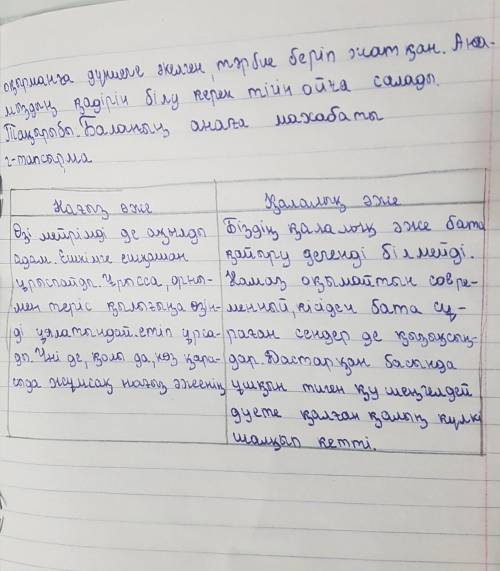 оқырманға дүниеге әкелген, тәрбие беріп жатқан. Ана-
мыздың қадірін білу керек тійн ойға салады.
Тақырыбы. Баланың анаға махаббаты
2-тапсырма
Нағыз әже
Өзі мейрімді де ақылды
адам. Ешкімге ешқашан
ұрыспайды. Ұрысса, орны-
мен теріс қылығыңа өзің-
ді ұялатындай етіп ұрса-
ды. Үні де, қолы да, көз қара-
сыда жұмсақ нағыз әженің
Қалалық әже
Біздің қалалық әже бата
қайыру дегенді білмейді.
Намаз оқымайтын совре-
менный, кісіден бата сұ-
раған сендер де қызықсың-
дар. Дастарқан басында
ұшқын тиген қу шеңгелдей
дуете қалған қалың күлкі
шалқып кетті.